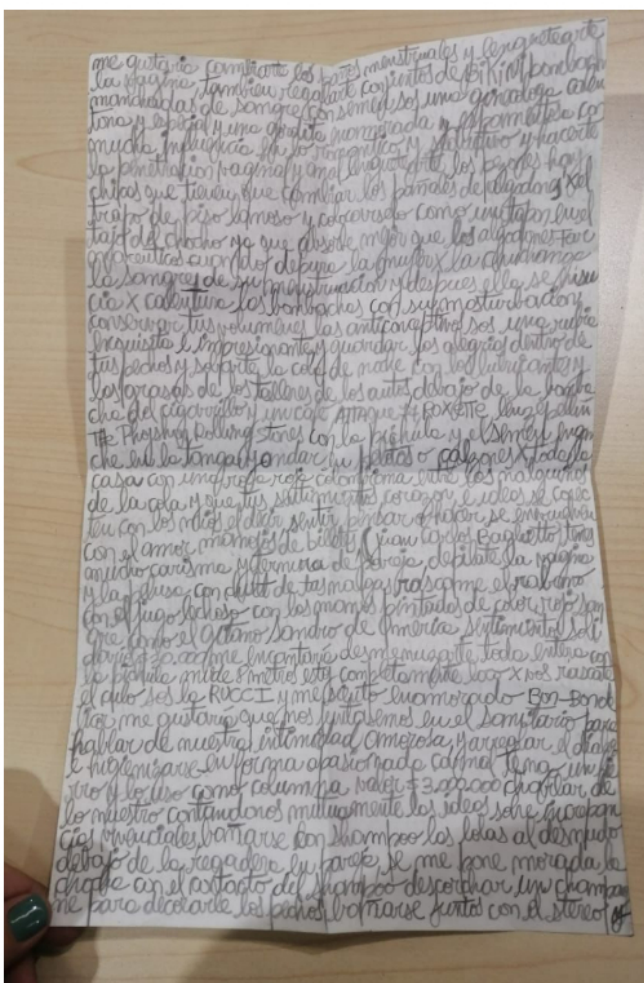 me gustaria cambiarte los pañes menstruales y lenguetearte
la vagina tambien regalarte conjuntos de bikini bombach
manchadas de sangre con semen sos una ginecologa calen
tona y especial y una gordita enamorada y esponjosita con
mucha influencia en lo romantico y seductivo y hacerte
la penetracion vaginal y anal lenguetearte los pezones hay
chicas que tienen que cambiar los pañales de algodon y x el
trapo de piso lanoso y colocarselo como un tapon en el
tajo del chocho ya que absorbe mejor que los algodones far
maceuticos cuando depura la mujer x la
la sangre de su menstruacion y despues ella se
cia x calentura las bombachas con su masturbacion y
conservar tus volumenes las anticonceptivos sos una rubia
exquisita e impresionante y guardar las alegrias dentro de
tus pechos y sobarte la cola de nade con los lubricantes y
las grasas de los talleres de los autos debajo de la bomba
cha del cigarrillo y un cafe Attaque 77 Roxette
The Rolling Stones con la pichula y el semen
che en la tanga y andar en patas o calzones x toda la
casa con una rosa roja colombiana entre los nalguinos
de la cola y que tus sentimientos corazon e ideas se conec
ten con los mios el decir sentir pensar o hacer se envuelven
con el amor manojos de billete (Juan Carlos Baglietto tenes
mucho carisma y ternura de pareja depilate la vagina
y la pelusa con de tus nalgas rascame el rabano
con el jugo lechoso con las manos pintados de color rojo san
gre como el Gitano Sandro de America sentimientos soli
darios \$30.000 me encantaria desmenuzarte toda entera con
la pichula mide 8 metros esty completamente loco x vos rascate
el culo sos la RUCCI y me siento enamorado Bon-Bonde
licas me gustaria que nos juntasemos en el sanitario para
hablar de nuestra intimidad amorosa, y arreglar el
e higienizarse en forma apasionada carnal tengo un pe
rro y lo uso como columpia valor \$3.000.000 charlar de
lo nuestro contandonos mutuamente las ideas sobre
cias vivenciales, bañarse con shampoo las lolas al desnudo
debajo de la regadera en pareja se me pone morada la
chocha con el contacto del shampoo descorchar un champag
ne para decorarle los pechos, bañarse juntos con el stereo